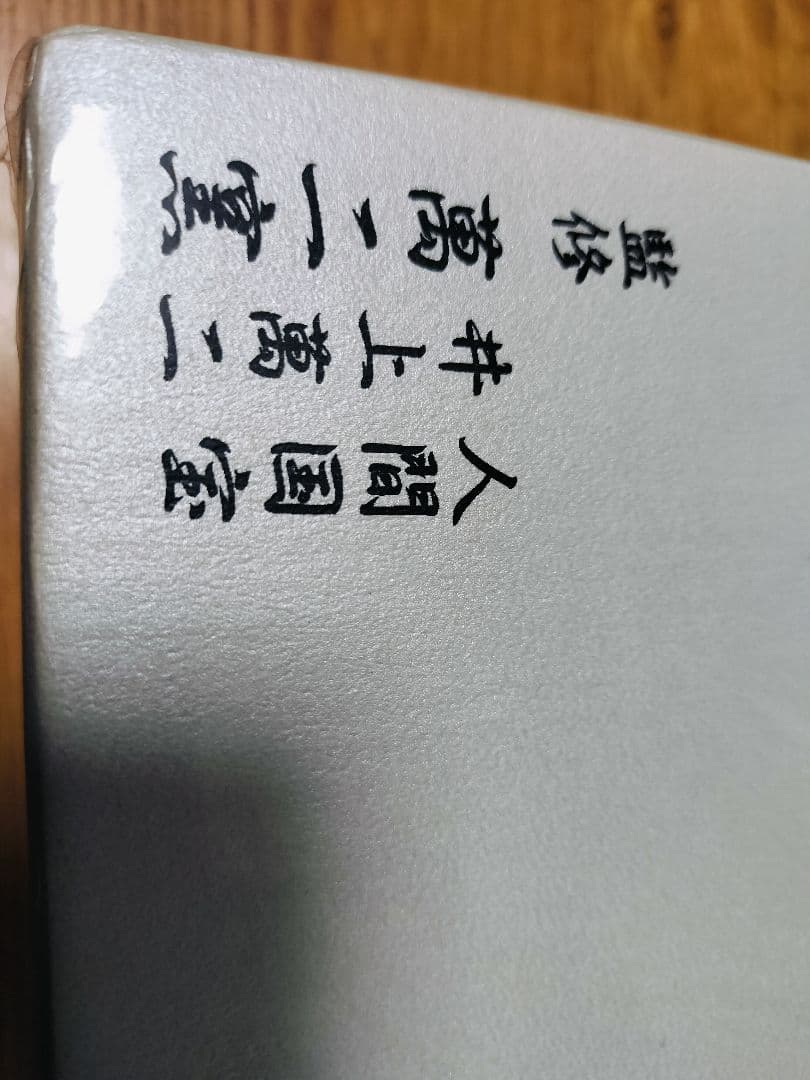 人間国宝
井上萬二
監修 萬二窯